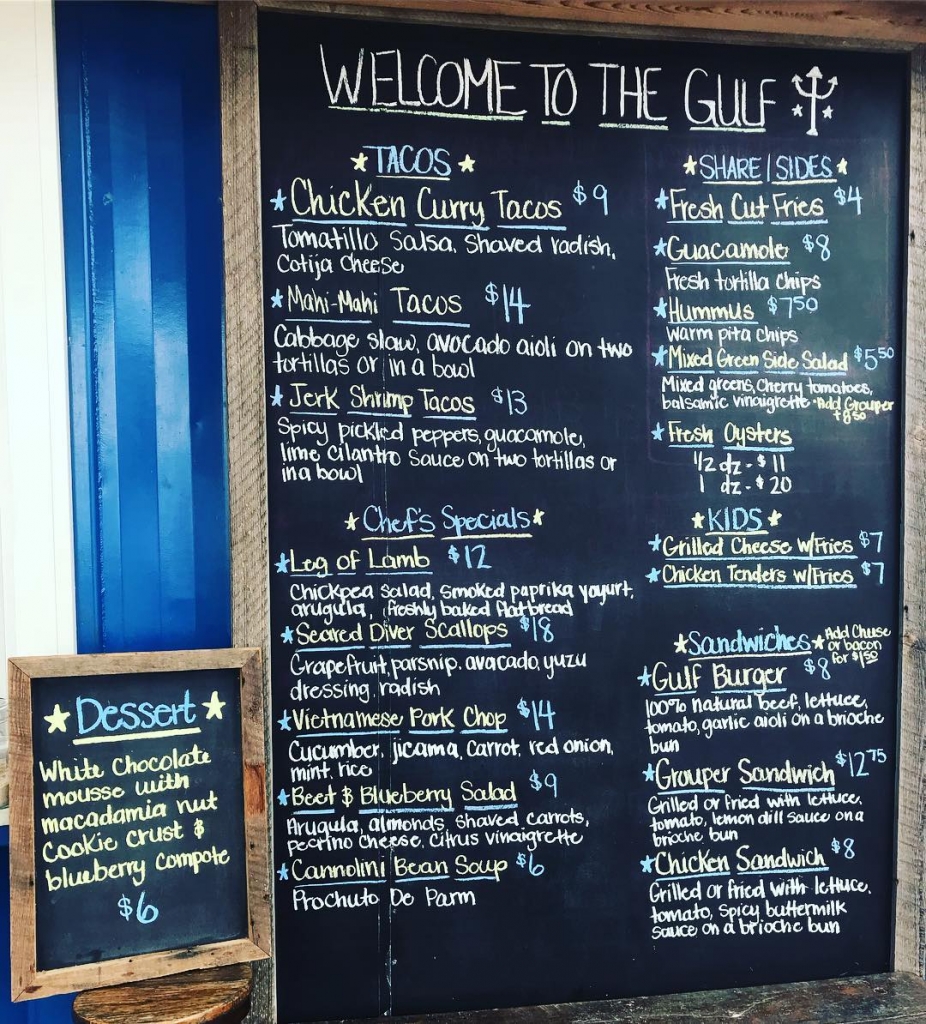 WELCOME TO THE GULF
TACOS
Chicken Curry Tacos $9
Tomatillo Salsa, Shaved radish,
Cotija Cheese
Mahi-Mahi Tacos $14
Cabbage slaw, avocado aioli on two
tortillas or in a bowl
Jerk Shrimp Tacos $13
Spicy pickled peppers, guacamole,
lime cilantro sauce on two tortillas or
in a bowl
Chef's Specials
Leg of Lamb $12
Chickpea salad, smoked paprika yogurt,
arugula, freshly baked flatbread
Seared Diver Scallops $18
Grapefruit, parsnip, avocado, yuzu
dressing, radish
Vietnamese Pork Chop $14
Cucumber, jicama, carrot, red onion,
mint, rice
Beet & Blueberry Salad $9
Arugula, almonds, shaved carrots,
pecorino cheese, citrus vinaigrette
Cannolini Bean Soup $6
Prochuto De Parm
SHARE/SIDES
Fresh Cut Fries $4
Guacamole $8
Fresh tortilla chips
Hummus $7.50
Warm pita chips
Mixed Green Side Salad $5.50
Mixed greens, cherry tomatoes,
balsamic vinaigrette *Add Grouper
+8.50
Fresh Oysters
1/2 dz - $11
1 dz - $20
KIDS
Grilled Cheese w/Fries $7
Chicken Tenders w/Fries $7
Sandwiches
Add Cheese
or bacon
for $1.50
Gulf Burger $8
100% natural beef, lettuce,
tomato, garlic aioli on a brioche
bun
Grouper Sandwich $12.75
Grilled or fried with lettuce,
tomato, lemon dill sauce on a
brioche bun
Chicken Sandwich $8
Grilled or fried with lettuce,
tomato, spicy buttermilk
sauce on a brioche bun
Dessert
White Chocolate
mousse with
macadamia nut
cookie crust &
blueberry compote
$6